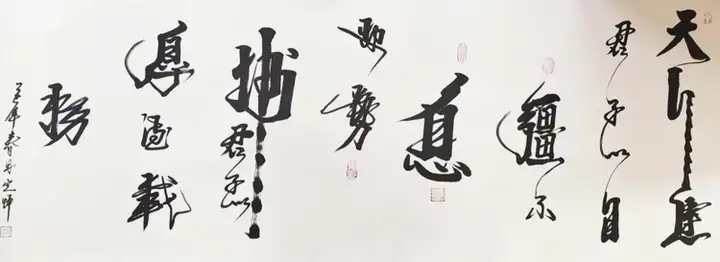 天行健
君子以自
彊不
息
地勢
坤君子以
厚德載
物
年春